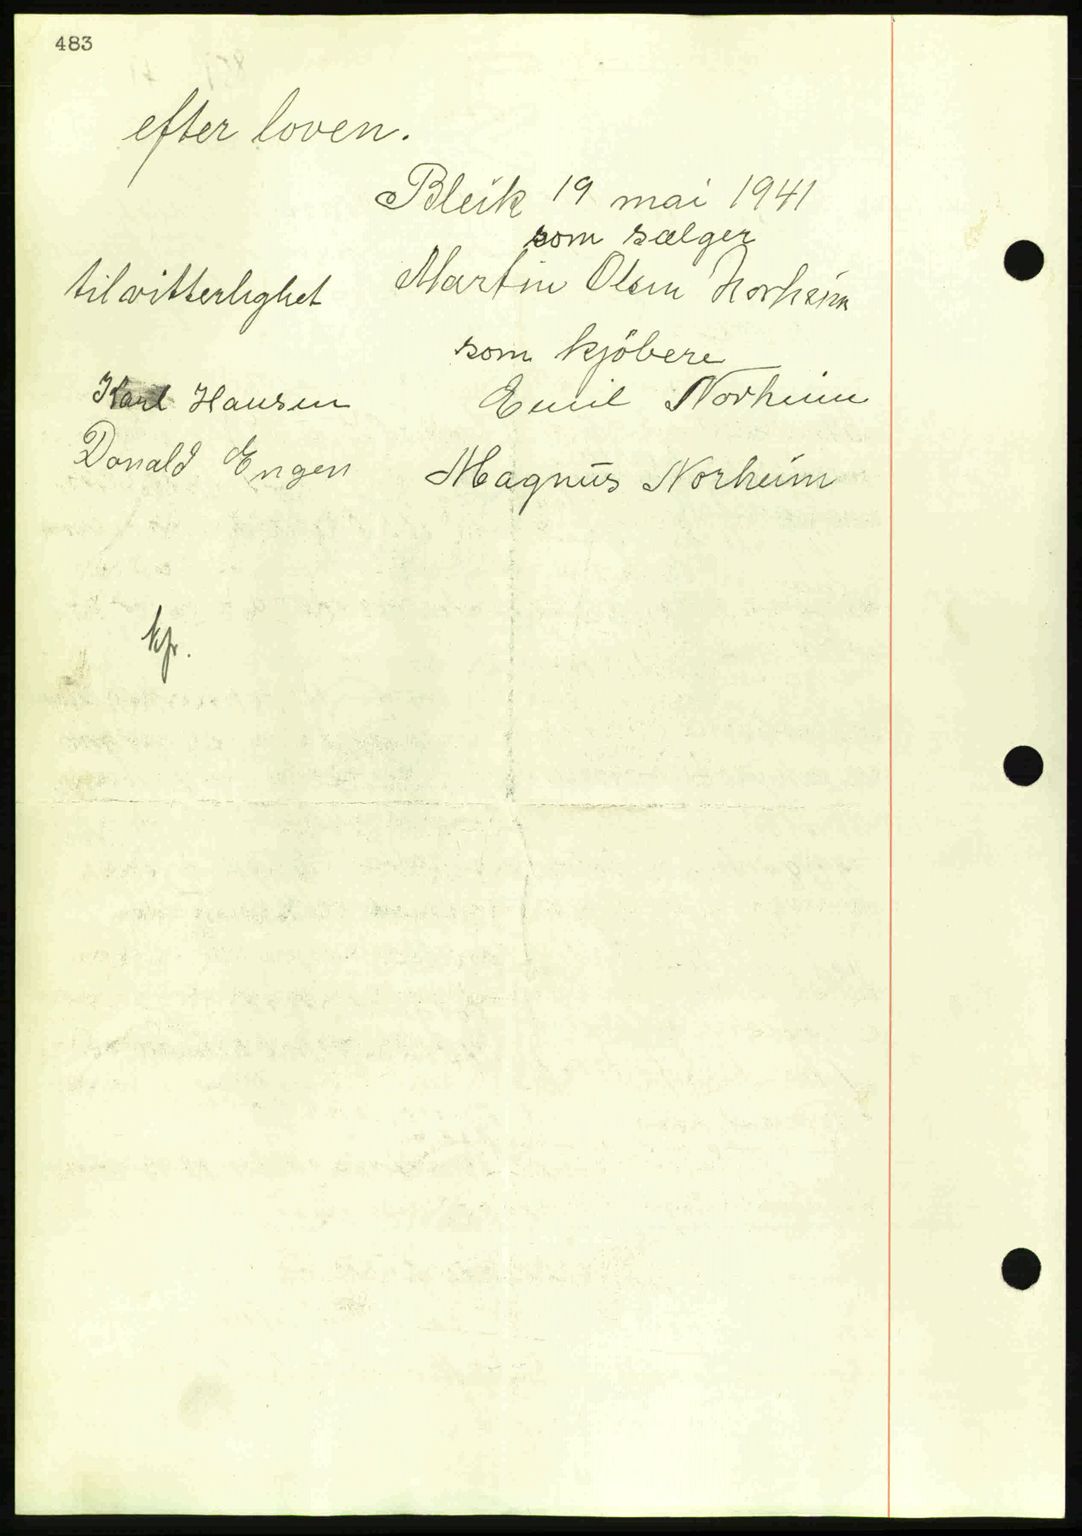 483
efter loven.
Bleik 19 mai 1941
som sælger
Martin Olsen Norheim
til vitterlighet
som kjöbere
Karl Hansen
Emil Norheim
Donald Engen
Magnus Norheim
kfr.